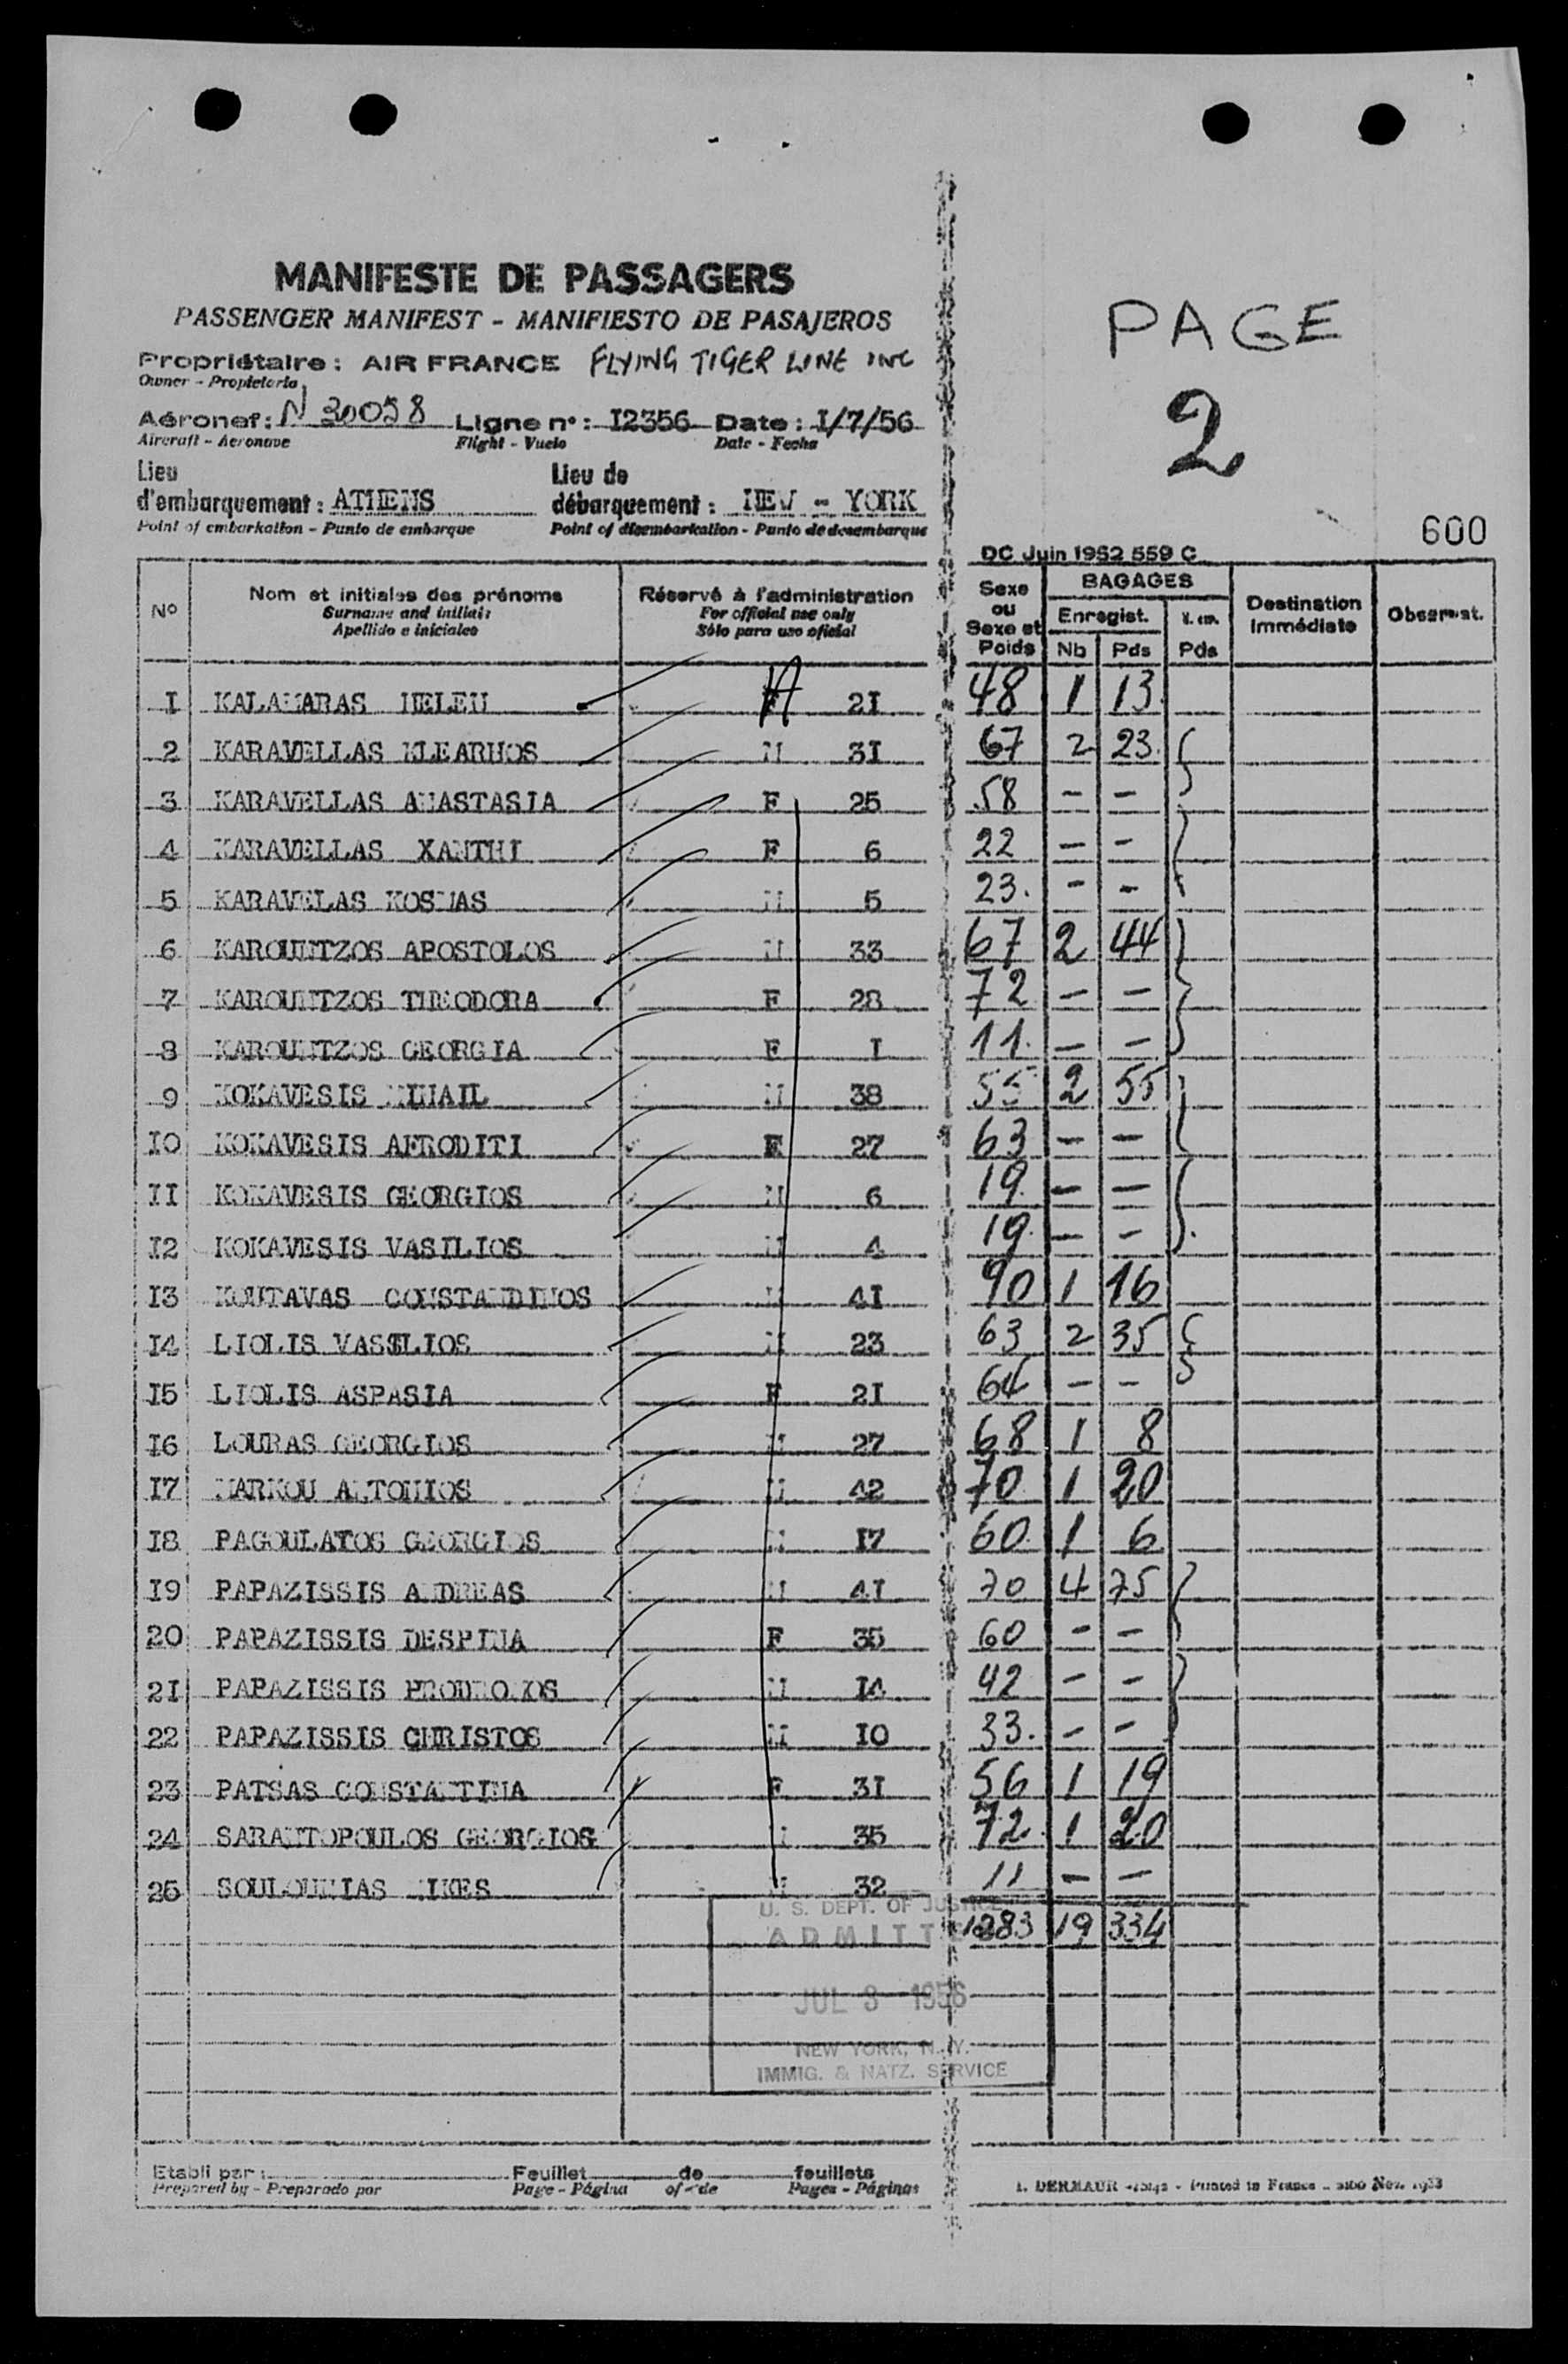 MANIFESTE DE PASSAGERS
PASSENGER MANIFEST - MANIFIESTO DE PASAJEROS
Propriétaire : AIR FRANCE FLYING TIGER LINE INC
Owner - Propietario
Aéronef : N 30058 Ligne n° : I2356 Date : I/7/56
Aircraft - Aeronave Flight - Vuelo Date - Fecha
Lieu d'embarquement : ATHENS Lieu de débarquement : NEW - YORK
Point of embarkation - Punto de embarque Point of disembarkation - Punto de desembarque
PAGE
2
600
DC Juin 1952 559 C
N° Nom et initiales des prénoms Réservé à l'administration Sexe ou Sexe et Poids BAGAGES Destination Immédiate Observat.
Surname and initials For official use only Enregist.
Apellido e iniciales Sólo para uso oficial Nb Pds Pds
I KALAMARAS HELEN 2I 48 1 13
2 KARAVELLAS KLEARHOS M 3I 67 2 23
3 KARAVELLAS ANASTASIA F 25 58 - -
4 KARAVELLAS XANTHI F 6 22 - -
5 KARAVELAS KOSMAS M 5 23. - -
6 KAROUNTZOS APOSTOLOS M 33 67 2 44
7 KAROUNTZOS THEODORA F 28 72 - -
8 KAROUNTZOS GEORGIA F I 11. - -
9 KOKAVESIS MIHAIL M 38 55 2 55
IO KOKAVESIS AFRODITI F 27 63 - -
II KOKAVESIS GEORGIOS M 6 19. - -
I2 KOKAVESIS VASILIOS M 4 19. - -
I3 KOUTAVAS CONSTANDINOS M 4I 90 1 16
I4 LIOLIS VASILIOS M 23 63 2 35
I5 LIOLIS ASPASIA F 2I 64 - -
I6 LOURAS GEORGIOS M 27 68 1 8
I7 MARKOU ANTONIOS M 42 70 1 20
I8 PAGOULATOS GEORGIOS M I7 60. 1 6
I9 PAPAZISSIS ANDREAS M 4I 70 4 75
20 PAPAZISSIS DESPINA F 35 60 - -
2I PAPAZISSIS PRODROMOS M I4 42 - -
22 PAPAZISSIS CHRISTOS M IO 33. - -
23 PATSAS CONSTANTINA F 3I 56 1 19
24 SARANTOPOULOS GEORGIOS M 35 72. 1 20
25 SOULOUNIAS MIKES M 32 11 - -
1283 19 334
U. S. DEPT. OF JUSTICE
ADMITTED
JUL 3 1956
NEW YORK, N. Y.
IMMIG. & NATZ. SERVICE
Etabli par : Feuillet de feuillets
Prepared by - Preparado por Page - Página of - de Pages - Páginas
DERMAUR - Printed in France - Nov. 1953